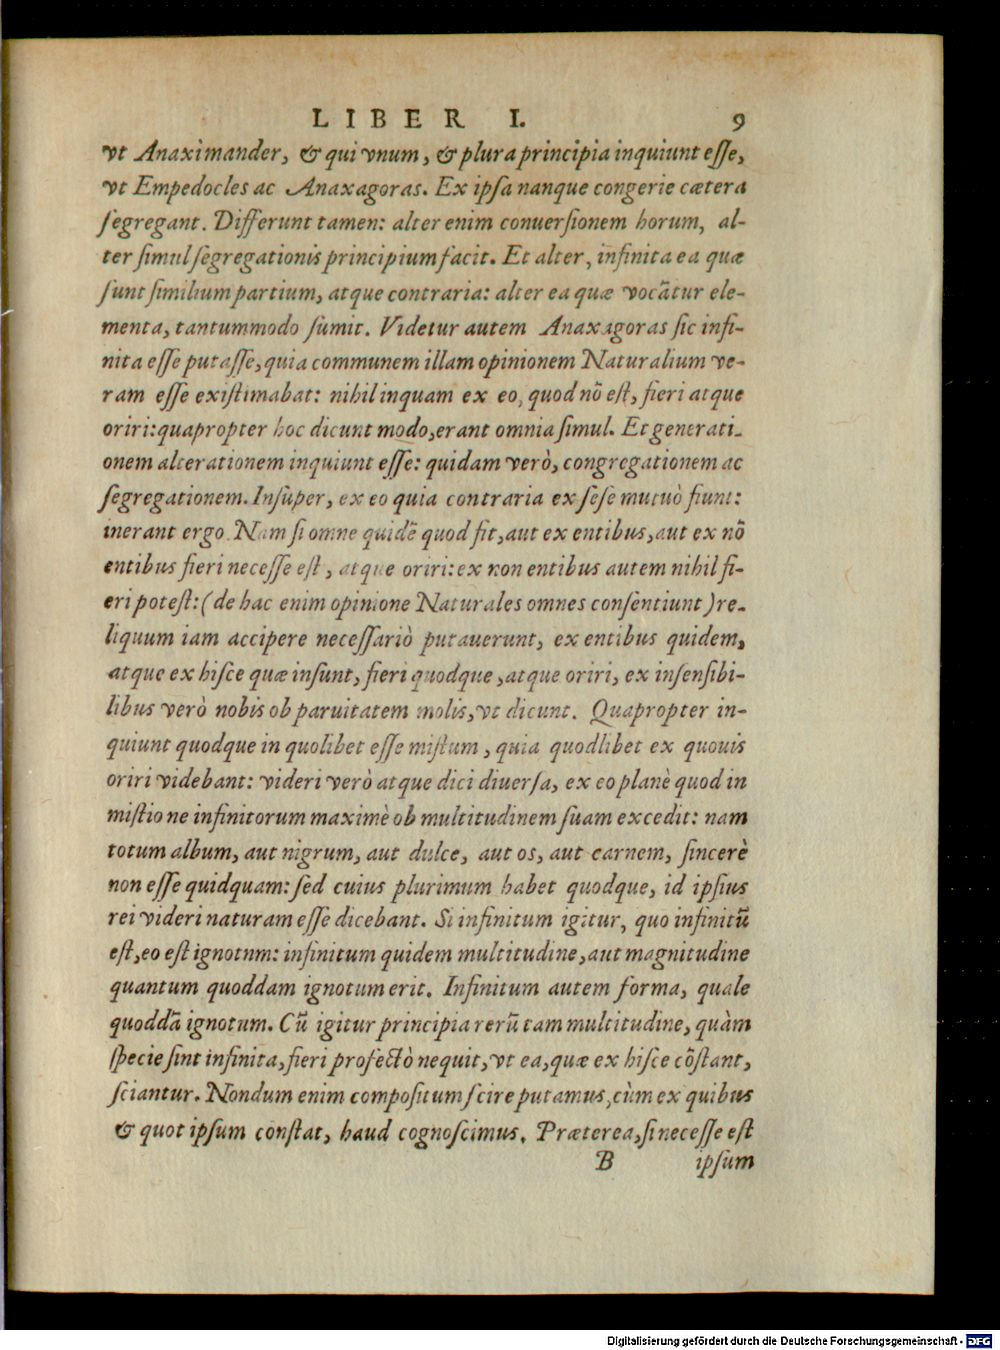 LIBER I. 9
vt Anaximander, & qui vnum, & plura principia inquiunt eſſe,
vt Empedocles ac Anaxagoras. Ex ipſa nanque congerie cætera
ſegregant. Differunt tamen: alter enim conuerſionem horum, al-
ter ſimul ſegregationis principium facit. Et alter, infinita ea quæ
ſunt ſimilium partium, atque contraria: alter ea quæ vocãtur ele-
menta, tantummodo ſumit. Videtur autem Anaxagoras ſic infi-
nita eſſe putaſſe, quia communem illam opinionem Naturalium ve-
ram eſſe exiſtimabat: nihil inquam ex eo, quod nõ eſt, fieri atque
oriri: quapropter hoc dicunt modo, erant omnia ſimul. Et generati-
onem alterationem inquiunt eſſe: quidam verò, congregationem ac
ſegregationem. Inſuper, ex eo quia contraria ex ſeſe mutuò fiunt:
inerant ergo. Nam ſi omne quidẽ quod fit, aut ex entibus, aut ex nõ
entibus fieri neceſſe eſt, atque oriri: ex non entibus autem nihil fi-
eri poteſt: (de hac enim opinione Naturales omnes conſentiunt) re-
liquum iam accipere neceſſariò putauerunt, ex entibus quidem,
atque ex hiſce quæ inſunt, fieri quodque, atque oriri, ex inſenſibi-
libus verò nobis ob paruitatem molis, vt dicunt. Quapropter in-
quiunt quodque in quolibet eſſe miſtum, quia quodlibet ex quouis
oriri videbant: videri verò atque dici diuerſa, ex eo planè quod in
miſtione infinitorum maximè ob multitudinem ſuam excedit: nam
totum album, aut nigrum, aut dulce, aut os, aut carnem, ſincerè
non eſſe quidquam: ſed cuius plurimum habet quodque, id ipſius
rei videri naturam eſſe dicebant. Si infinitum igitur, quo infinitũ
eſt, eo eſt ignotnm: infinitum quidem multitudine, aut magnitudine
quantum quoddam ignotum erit. Infinitum autem forma, quale
quoddã ignotum. Cũ igitur principia rerũ tam multitudine, quàm
ſpecie ſint infinita, fieri profectò nequit, vt ea, quæ ex hiſce cõſtant,
ſciantur. Nondum enim compoſitum ſcire putamus, cùm ex quibus
& quot ipſum conſtat, haud cognoſcimus. Præterea, ſi neceſſe eſt
B ipſum
Digitalisierung gefördert durch die Deutsche Forschungsgemeinschaft - DFG